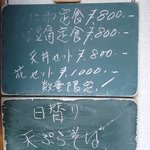 定食 ¥800.—
定食 ¥800.—
天丼セット ¥800.—
セット ¥1,000.—
数量限定!
日替り
天ぷらそば